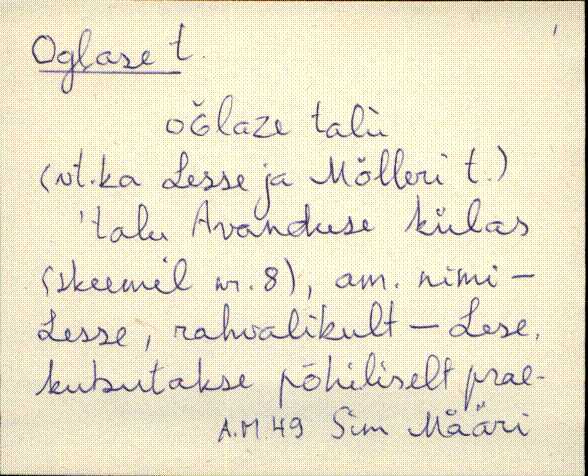 Oglase t.
oğlaze talù
(vt.ka Lesse ja Mölleri t.)
'talu Avanduse külas
(skeemil nr. 8), am. nimi –
Lesse, rahvalikult – Lese,
kutsutakse põhiliselt prae-
A.M 49 Sim Määri